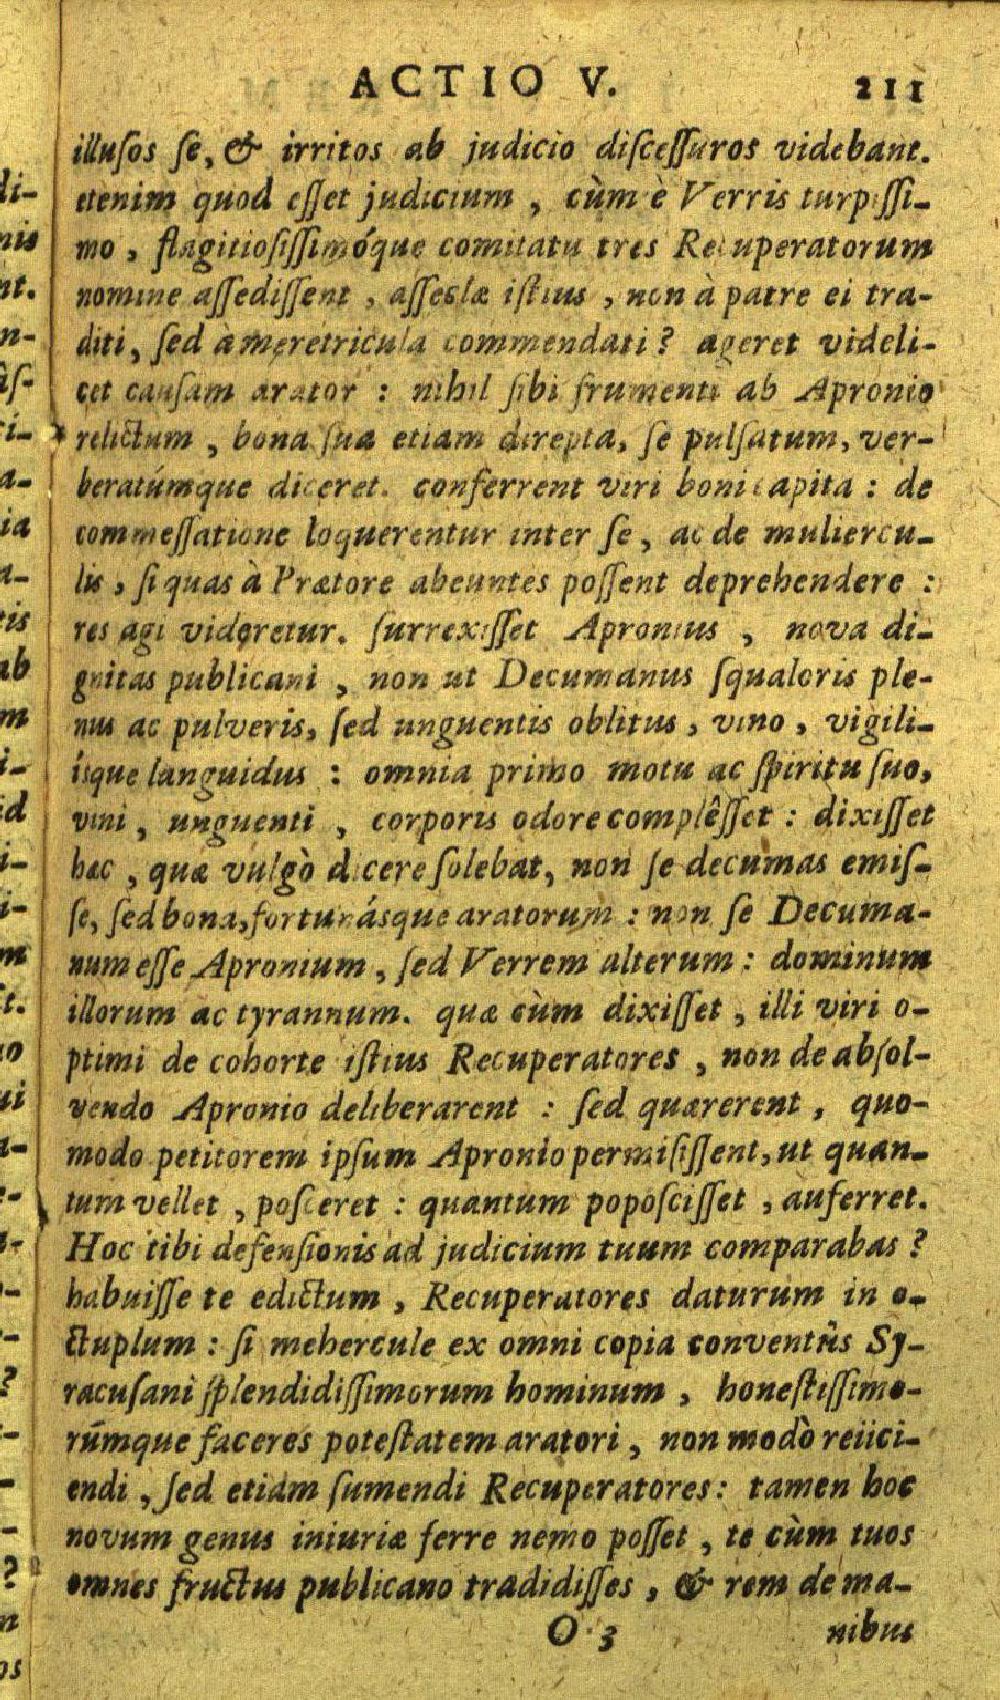 ACTIO V. 211
illuſos ſe, & irritos ab judicio diſceſſuros videbant.
etenim quod eſſet judicium, cùm è Verris turpiſſi-
mo, flagitioſiſſimóque comitatu tres Recuperatorum
nomine aſſediſſent, aſſeclæ iſtius, non à patre ei tra-
diti, ſed à meretricula commendati? ageret videli-
cet cauſam arator : nihil ſibi frumenti ab Apronio
relictum, bona ſua etiam direpta, ſe pulſatum, ver-
beratúmque diceret. conferrent viri boni capita : de
commeſſatione loquerentur inter ſe, ac de muliercu-
lis, ſi quas à Prætore abeuntes poſſent deprehendere :
res agi videretur. ſurrexiſſet Apronius, nova di-
gnitas publicani, non ut Decumanus ſqualoris ple-
nus ac pulveris, ſed unguentis oblitus, vino, vigili-
ísque languidus : omnia primo motu ac ſpiritu ſuo,
vini, unguenti, corporis odore complêſſet : dixiſſet
hæc, quæ vulgò dicere ſolebat, non ſe decumas emiſ-
ſe, ſed bona, fortunásque aratorum : non ſe Decuma-
num eſſe Apronium, ſed Verrem alterum : dominum
illorum ac tyrannum. quæ cùm dixiſſet, illi viri o-
ptimi de cohorte iſtius Recuperatores, non de abſol-
vendo Apronio deliberarent : ſed quærerent, quo-
modo petitorem ipſum Apronio permiſiſſent, ut quan-
tum vellet, poſceret : quantum popoſciſſet, auferret.
Hoc tibi defenſionis ad judicium tuum comparabas?
habuiſſe te edictum, Recuperatores daturum in o-
ctuplum : ſi mehercule ex omni copia conventûs Sy-
racuſani ſplendidiſſimorum hominum, honeſtiſſimo-
rúmque faceres poteſtatem aratori, non modò reiici-
endi, ſed etiam ſumendi Recuperatores : tamen hoc
novum genus iniuriæ ferre nemo poſſet, te cùm tuos
omnes fructus publicano tradidiſſes, & rem de ma-
O 3 nibus